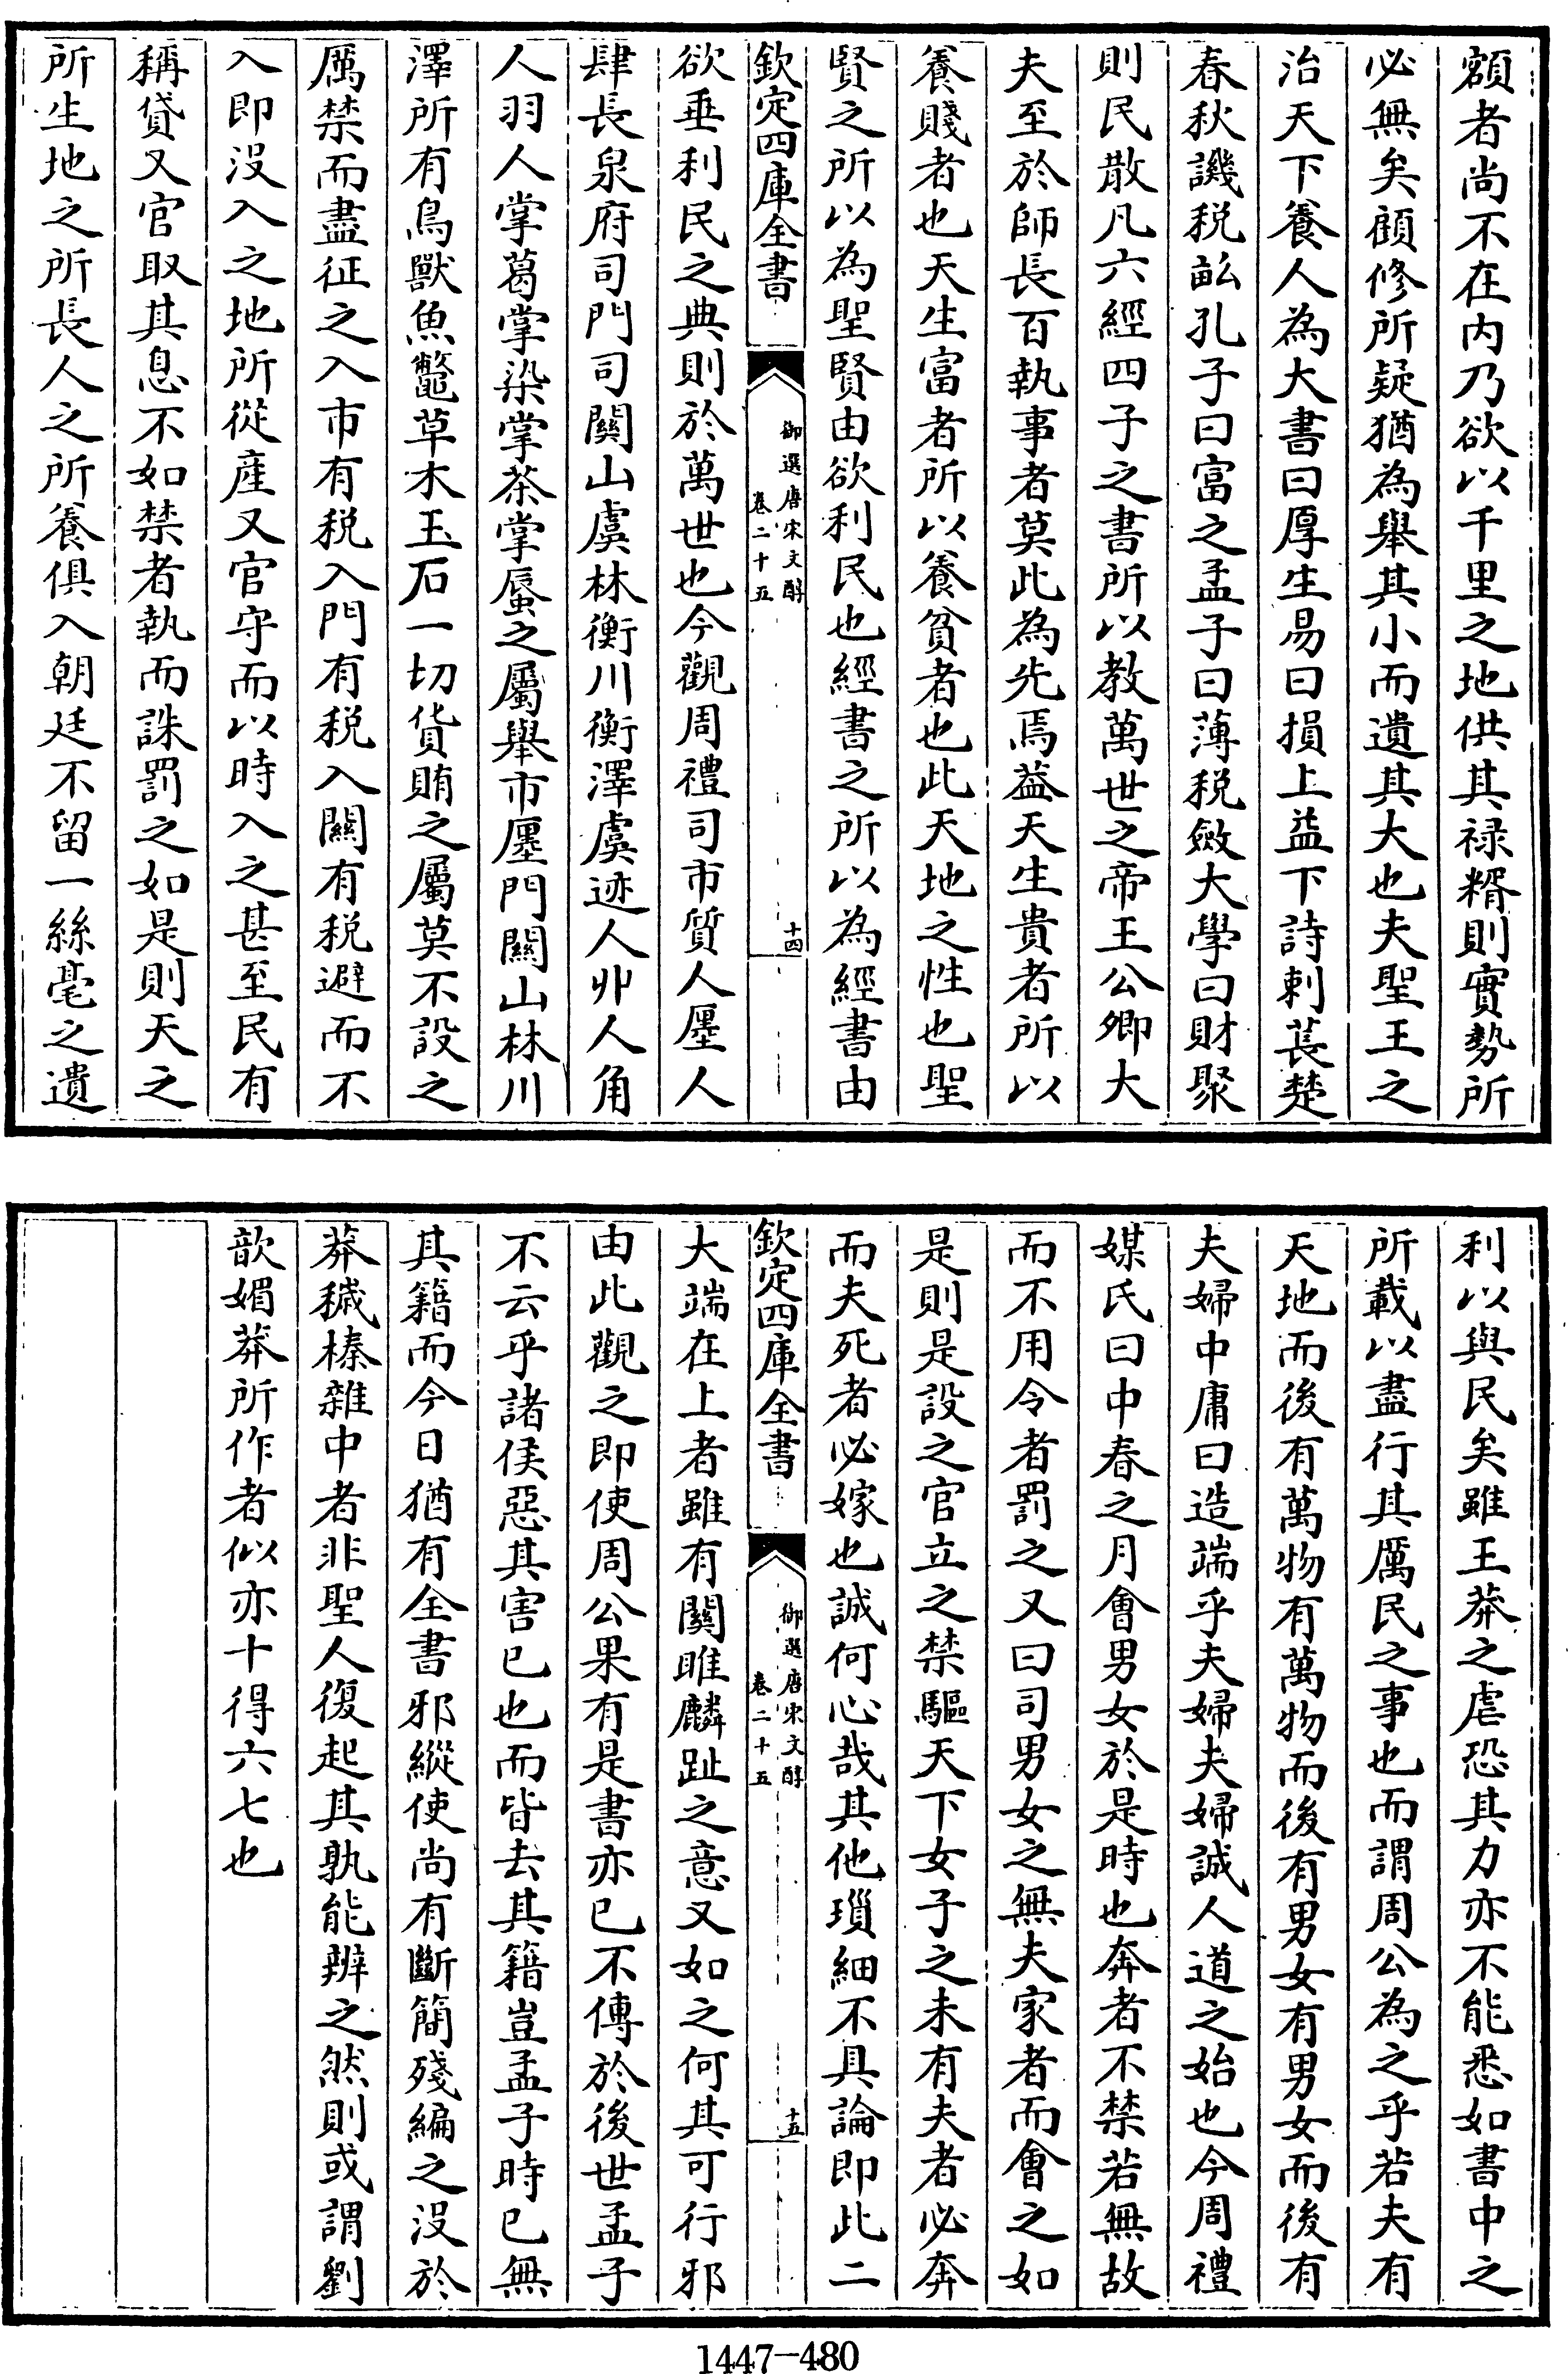 額者尚不在内乃欲以千里之地供其禄糈則實勢所
必無矣顧修所疑猶為舉其小而遺其大也夫聖王之
治天下養人為大書曰厚生易曰損上益下詩刺萇楚
春秋譏税畝孔子曰富之孟子曰薄税斂大學曰財聚
則民散凡六經四子之書所以教萬世之帝王公卿大
夫至於師長百執事者莫此為先焉益天生貴者所以
養賤者也天生富者所以養貧者也此天地之性也聖
賢之所以為聖賢由欲利民也經書之所以為經書由
欽定四庫全書
御選唐宋文醇
卷二十五
十四
欲垂利民之典則於萬世也今觀周禮司市質人廛人
肆長泉府司門司關山虞林衡川衡澤虞迹人丱人角
人羽人掌葛掌染掌荼掌蜃之屬舉市廛門關山林川
澤所有鳥獸魚鼈草木玉石一切貨賄之屬莫不設之
厲禁而盡征之入市有税入門有税入關有税避而不
入即没入之地所從産又官守而以時入之甚至民有
稱貸又官取其息不如禁者執而誅罰之如是則天之
所生地之所長人之所養俱入朝廷不留一絲毫之遺
利以與民矣雖王莽之虐恐其力亦不能悉如書中之
所載以盡行其厲民之事也而謂周公為之乎若夫有
天地而後有萬物有萬物而後有男女有男女而後有
夫婦中庸曰造端乎夫婦夫婦誠人道之始也今周禮
媒氏曰中春之月會男女於是時也奔者不禁若無故
而不用令者罰之又曰司男女之無夫家者而會之如
是則是設之官立之禁驅天下女子之未有夫者必奔
而夫死者必嫁也誠何心哉其他瑣細不具論即此二
欽定四庫全書
御選唐宋文醇
卷二十五
十五
大端在上者雖有關雎麟趾之意又如之何其可行邪
由此觀之即使周公果有是書亦已不傳於後世孟子
不云乎諸侯惡其害已也而皆去其籍豈孟子時已無
其籍而今日猶有全書邪縱使尚有斷簡殘編之没於
莽穢榛雜中者非聖人復起其孰能辨之然則或謂劉
歆媚莽所作者似亦十得六七也
1447-480